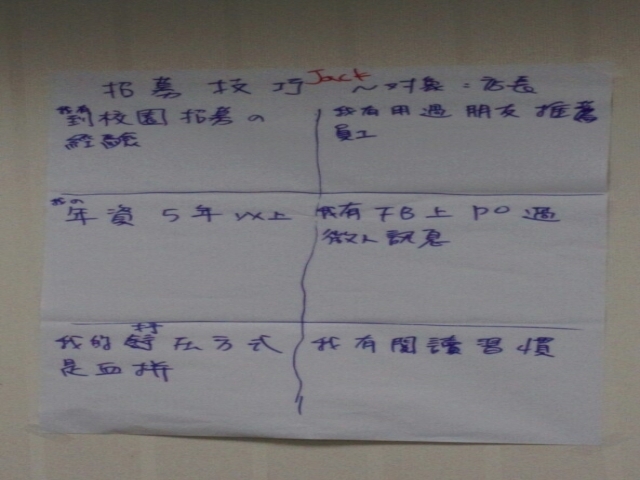 招募技巧 Jack ~對象:店長
我有到校園招募の
經驗
我有用過朋友推薦
員工
我の年資5年以上
我有FB上PO過
徵人訊息
我的紓压方式
是血拼
我有閱讀習慣